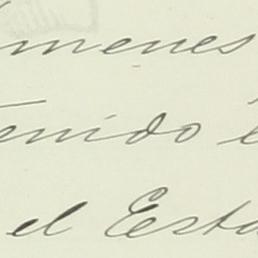 imenes
tenido e
el Esta